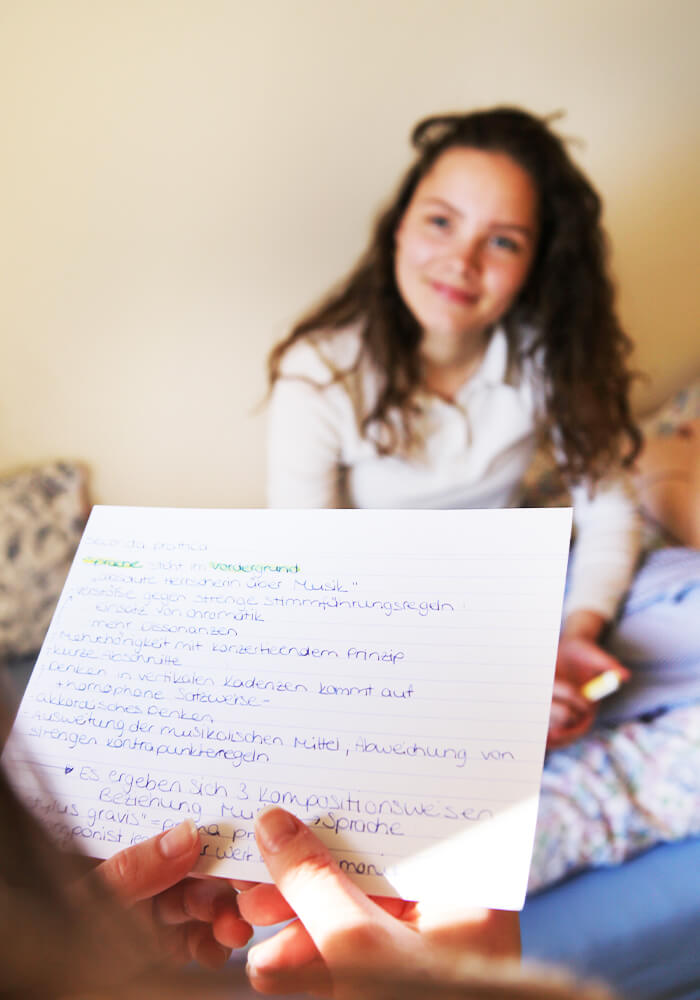 seconda prattica
Sprache steht im Vordergrund
"absolute Herrscherin über Musik"
Verstöße gegen strenge Stimmführungsregeln:
Einsatz von Chromatik
mehr Dissonanzen
Mehrchörigkeit mit konzertierendem Prinzip
kurze Abschnitte
Denken in vertikalen Kadenzen kommt auf
→ homophone Satzweise
- akkordisches Denken
- Ausweitung der musikalischen Mittel, Abweichung von
strengen Kontrapunktregeln
♥ Es ergeben sich 3 Kompositionsweisen
Beziehung → Sprache
gravis" = prima
wert